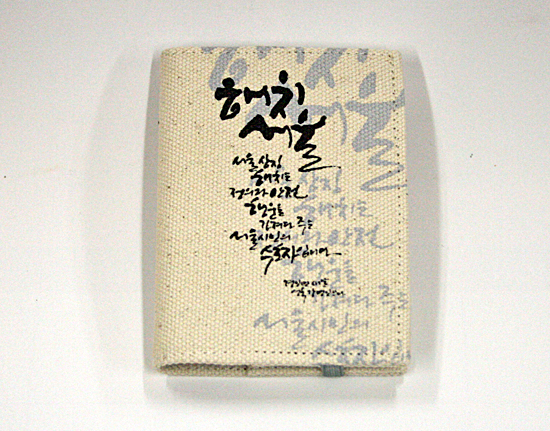 해치
서울
서울상징
해치는
정의와 안전
행운을
가져다 주는
서울시민의
수호자입니다